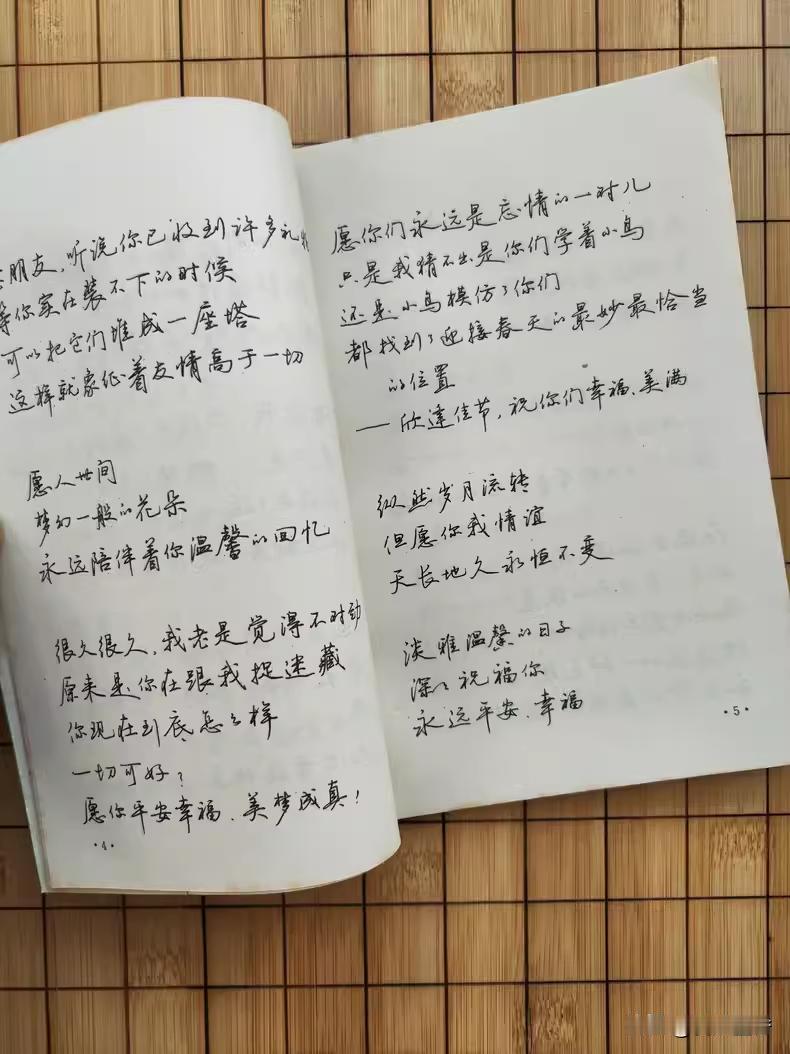 朋友,听说你已收到许多礼物
等你实在装不下的时候
可以把它们堆成一座塔
这样就象征着友情高于一切
愿人世间
梦幻一般的花朵
永远陪伴着你温馨的回忆
很久很久,我老是觉得不对劲
原来是你在跟我捉迷藏
你现在到底怎么样
一切可好?
愿你平安幸福、美梦成真!
·4·
愿你们永远是忘情的一对儿
只是我猜不出是你们学着小鸟
还是小鸟模仿了你们
都找到了迎接春天的最妙最恰当
的位置
——欣逢佳节,祝你们幸福、美满
纵然岁月流转
但愿你我情谊
天长地久永恒不变
淡雅温馨的日子
深深祝福你
永远平安、幸福
·5·